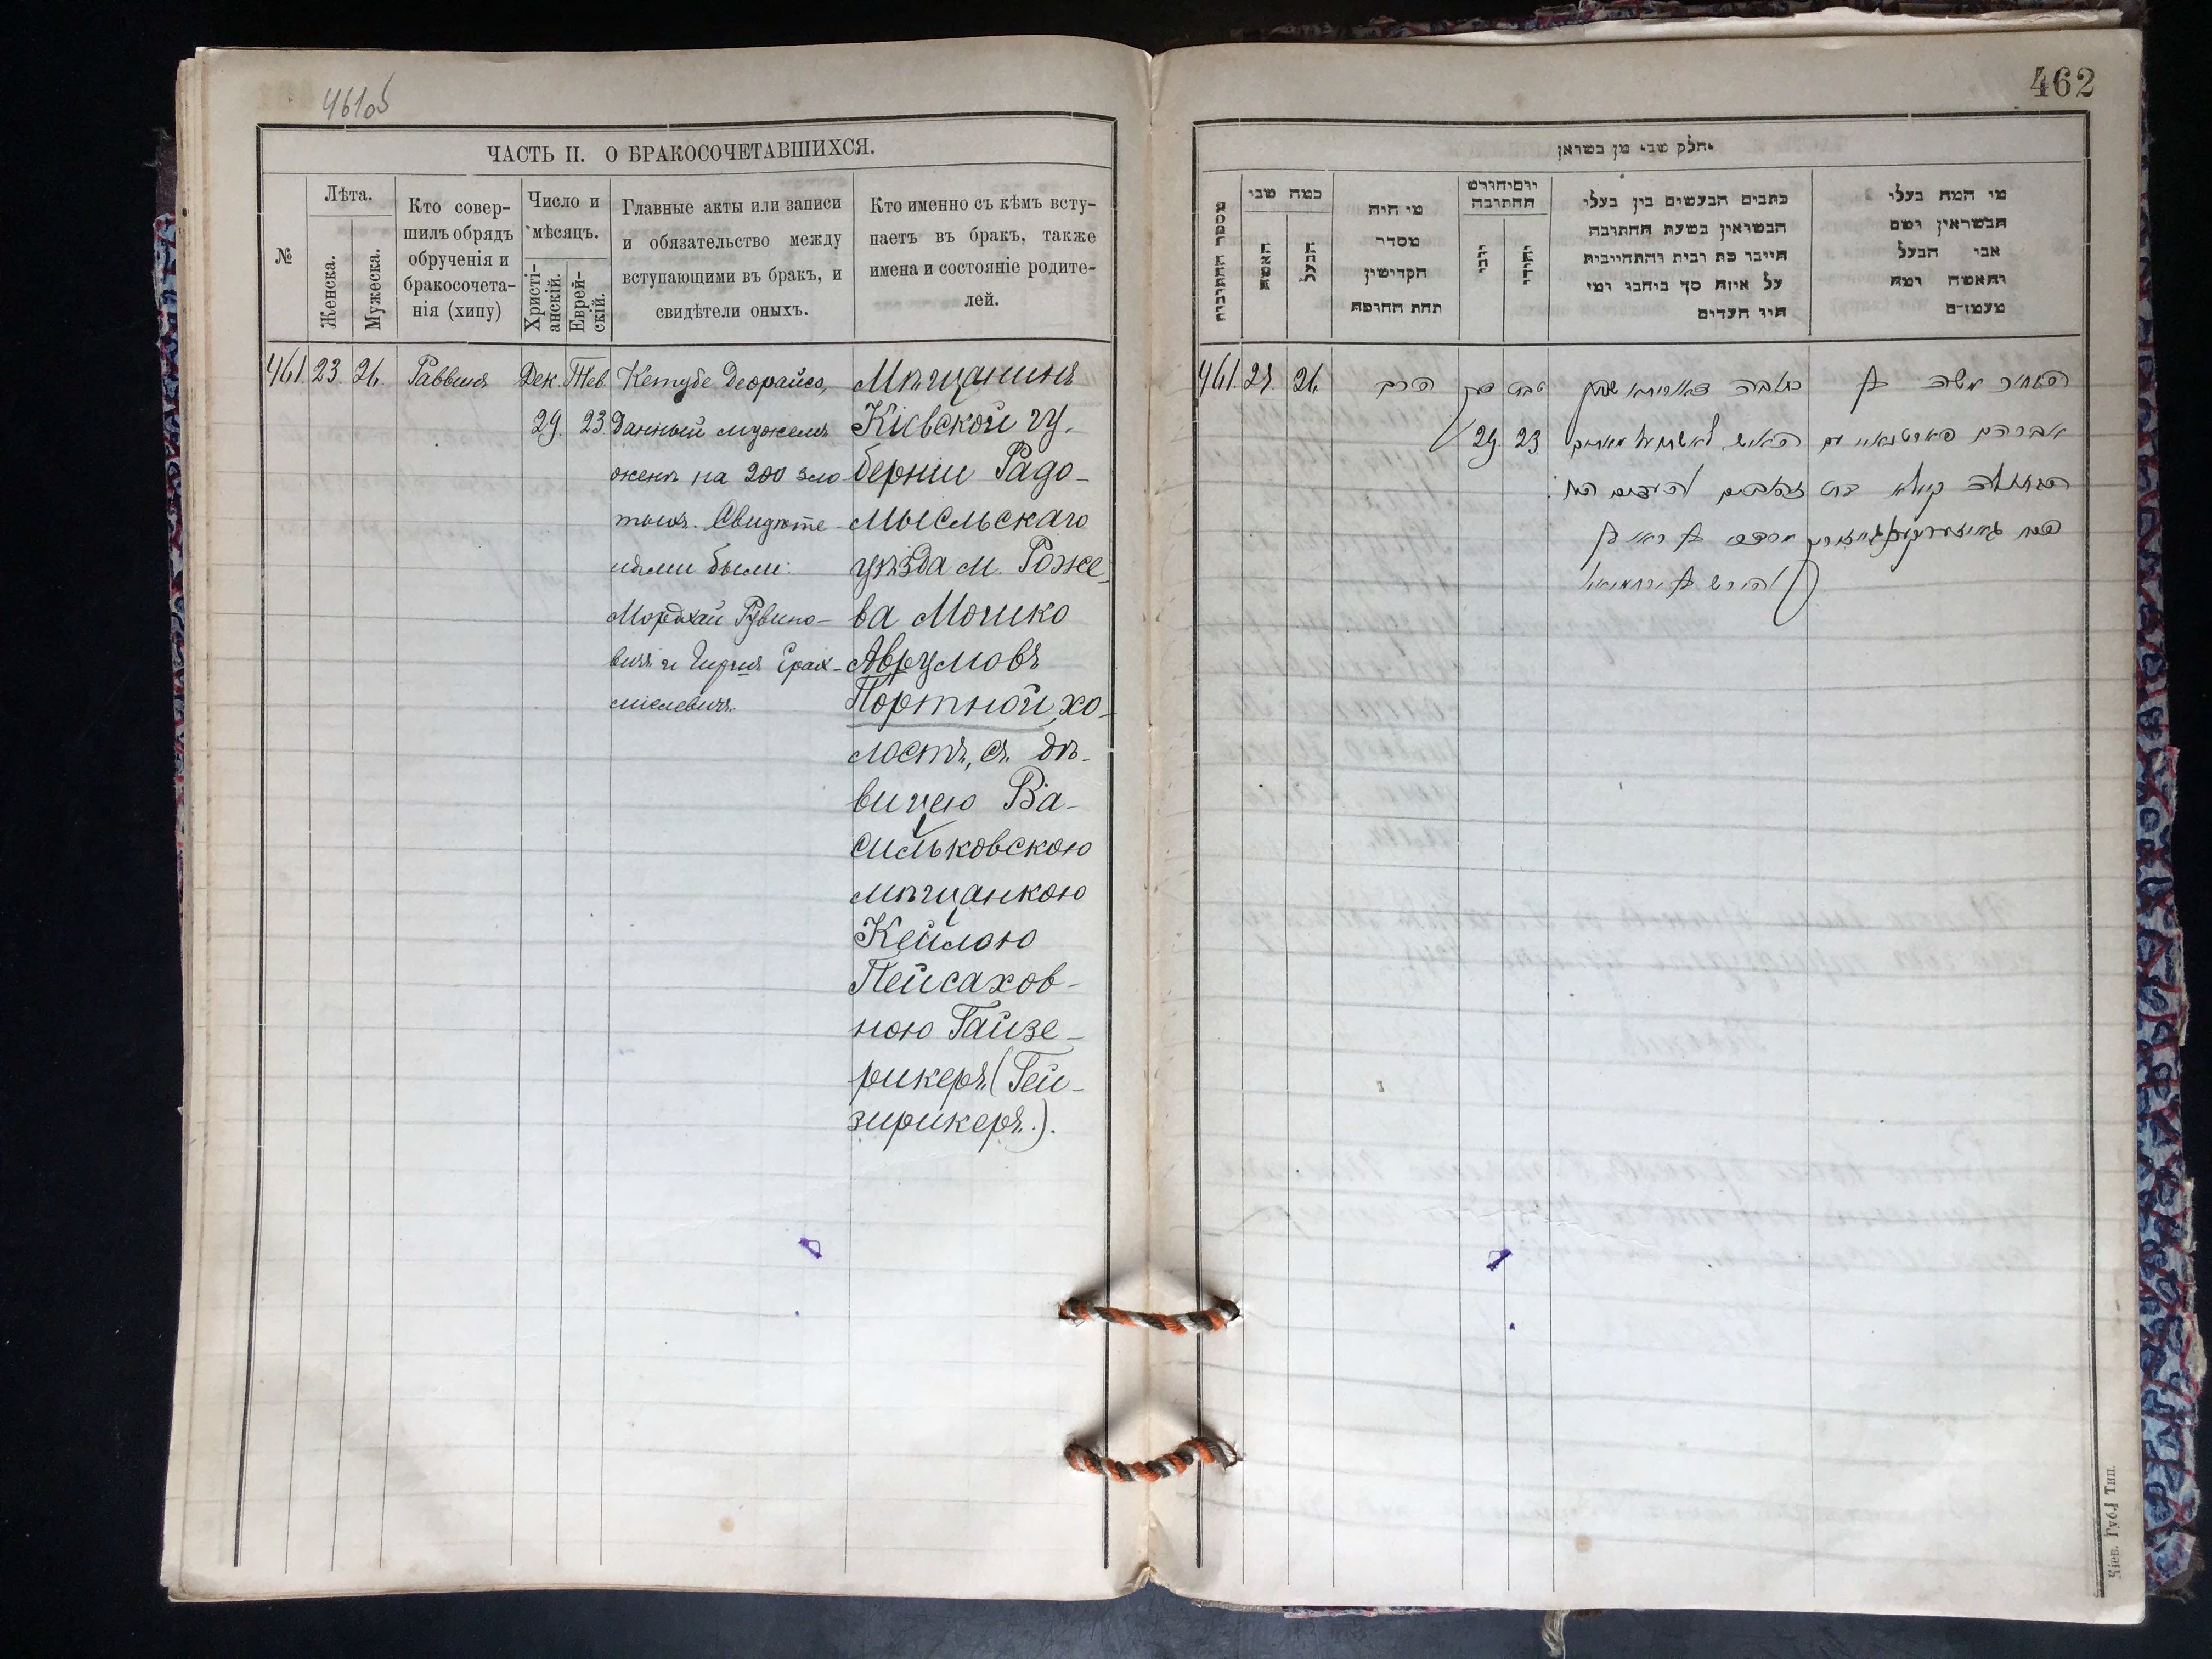 461об
ЧАСТЬ II. О БРАКОСОЧЕТАВШИХСЯ.
№
Лѣта.
Женска.
Мужеска.
Кто совер-
шилъ обрядъ
обрученія и
бракосочета-
нія (хипу)
Число и
мѣсяцъ.
Христі-
анскій.
Еврей-
скій.
Главные акты или записи
и обязательство между
вступающими въ бракъ, и
свидѣтели оныхъ.
Кто именно съ кѣмъ всту-
паетъ въ бракъ, также
имена и состояніе родите-
лей.
461. 23. 26. Раввинъ
Дек. Тев.
29. 23.
Кетубе деорайсо,
данный мужемъ
женѣ на 200 зло
тыхъ. Свидѣте
лями были:
Мордхай Рувино-
вичъ и Гиршъ Срах-
міелевичъ.
Мѣщанинъ
Кіевской гу-
берніи Радо-
мысльскаго
уѣзда м. Роже-
ва Мошко
Аврумовъ
Портной, хо-
лостъ, съ дѣ-
вицею Ва-
сильковскою
мѣщанкою
Кейлою
Пейсахов-
ною Гайзе-
рикеръ (Гей-
зирикеръ.).
462
חלק שני מן נשואין
מספר החתונות
כמה שני
האשה
הבעל
מי היה
מסדר
הקדישין
תחת החופה
יום וחודש
החתונה
כתבים הנעשים בין בעלי
הנשואין בשעת החתונה
על איזה סך כיתבו ומי
היו העדים
מי המה בעלי
הנשואין ושם
אבי הבעל
והאשה ומה
מעמדם
461. 23. 26. הרב
29. 23
טבת
כתובה דאורייתא
הבחור משה בן
אברהם פארטנאי עם
הבתולה קיילא בת
פסח
Кіев. Губ. Тип.